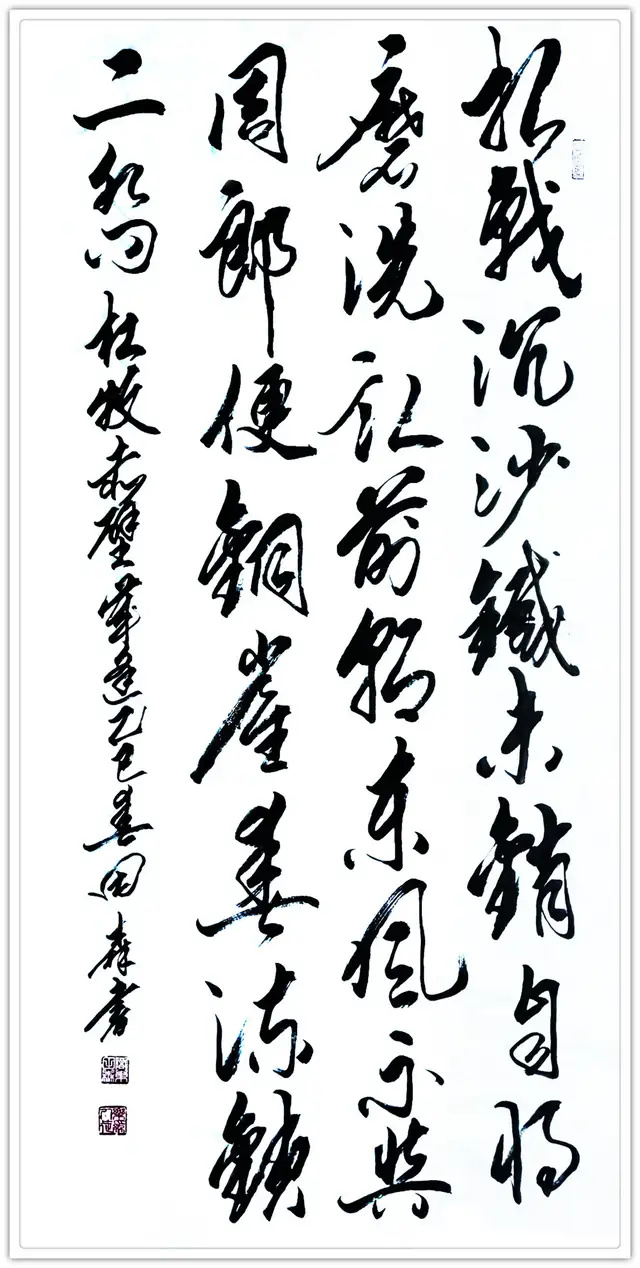 折戟沉沙鐵未銷自將
磨洗認前朝東風不與
周郎便銅雀春深鎖
二喬 杜牧赤壁 歲逢乙巳春 書